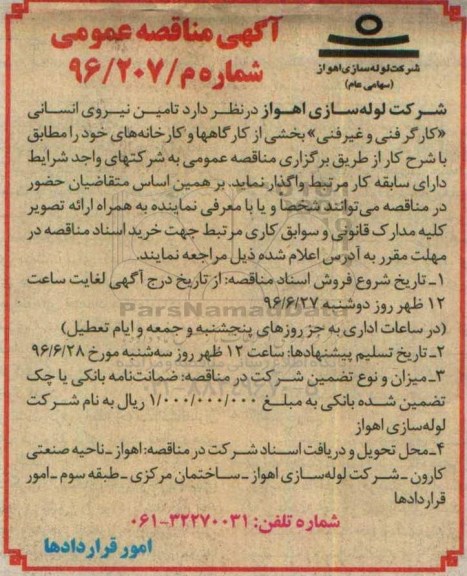 آگهی مناقصه عمومی
شماره م/۹۶/۲۰۷
شرکت لوله‌سازی اهواز
(سهامی عام)
شرکت لوله‌سازی اهواز درنظر دارد تامین نیروی انسانی
«کارگر فنی و غیرفنی» بخشی از کارگاهها و کارخانه‌های خود را مطابق
با شرح کار از طریق برگزاری مناقصه عمومی به شرکتهای واجد شرایط
دارای سابقه کار مرتبط واگذار نماید. بر همین اساس متقاضیان حضور
در مناقصه می‌توانند شخصا و یا با معرفی نماینده به همراه ارائه تصویر
کلیه مدارک قانونی و سوابق کاری مرتبط جهت خرید اسناد مناقصه در
مهلت مقرر به آدرس اعلام شده ذیل مراجعه نمایند.
۱ـ تاریخ شروع فروش اسناد مناقصه: از تاریخ درج آگهی لغایت ساعت
۱۲ ظهر روز دوشنبه ۹۶/۶/۲۷
ParsNamadData
(در ساعات اداری به جز روزهای پنجشنبه و جمعه و ایام تعطیل)
۲ـ تاریخ تسلیم پیشنهادها: ساعت ۱۲ ظهر روز سه‌شنبه مورخ ۹۶/۶/۲۸
۳ـ میزان و نوع تضمین شرکت در مناقصه: ضمانت‌نامه بانکی یا چک
تضمین شده بانکی به مبلغ ۱/۰۰۰/۰۰۰/۰۰۰ ریال به نام شرکت
لوله‌سازی اهواز
۴ـ محل تحویل و دریافت اسناد شرکت در مناقصه: اهواز ـ ناحیه صنعتی
کارون ـ شرکت لوله‌سازی اهواز ـ ساختمان مرکزی ـ طبقه سوم ـ امور
قراردادها
شماره تلفن: ۳۲۲۷۰۰۳۱-۰۶۱
امور قراردادها